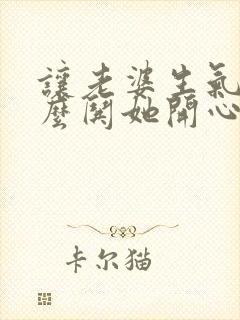 讓老婆生氣
麼関她開心
卡尔猫